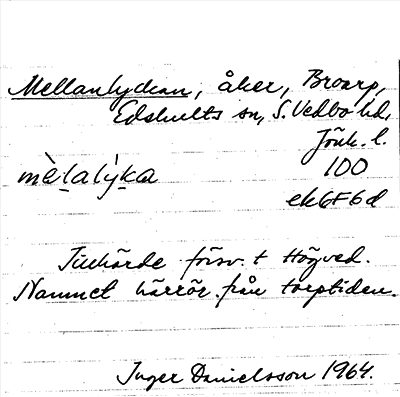 Mellanlyckan, åker, Broarp,
Edshults sn, S. Vedbo hd,
Jönk. l.
mè̱lalý̱ka 100
ek6F6d
Tillhörde försv. t Högved.
Namnet härrör från torptiden.
Inger Danielsson 1964.